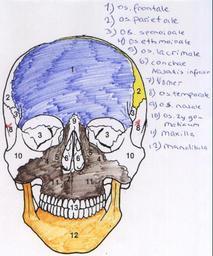 1) os. frontale
2) os parietale
3) os. spenoidale
4) os ethmoidale
5) os. lacrimale
6) conchae
nasalis inferior
7) vomer
8) os. temporale
9) os. nasale
10) os. zygo-
maticum
11) maxilla
12) mandibula
1
2
2
3
3
8
8
9
10
10
6
6
7
11
13
12